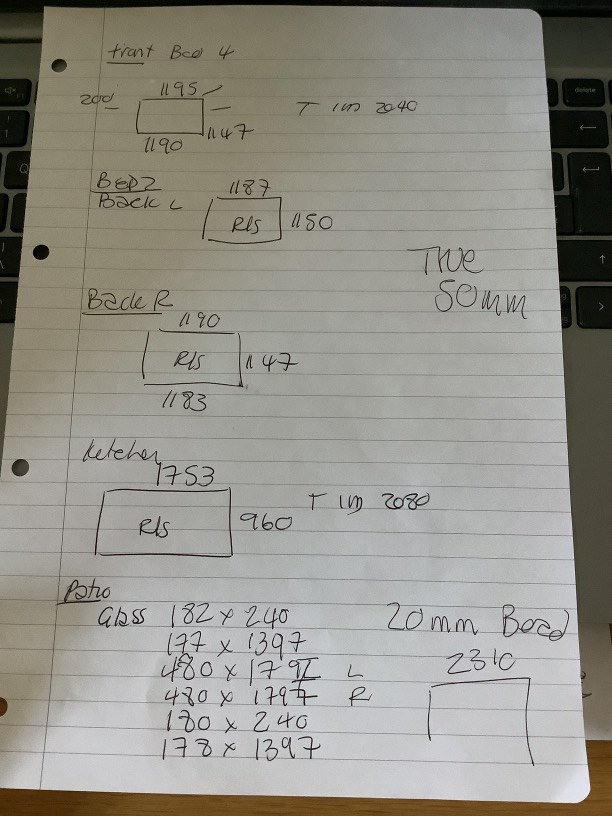 front Bed 4
1195
200
1147
T im 2040
1190
BED2
Back L
1187
R/s
1150
True
50mm
Back R
1190
R/s
1147
1183
ketchen
1753
R/s
960
T im 2080
Patio
Glass 182 x 240
177 x 1397
480 x L
480 x 1797 R
180 x 240
178 x 1397
20mm Bead
2310
delete